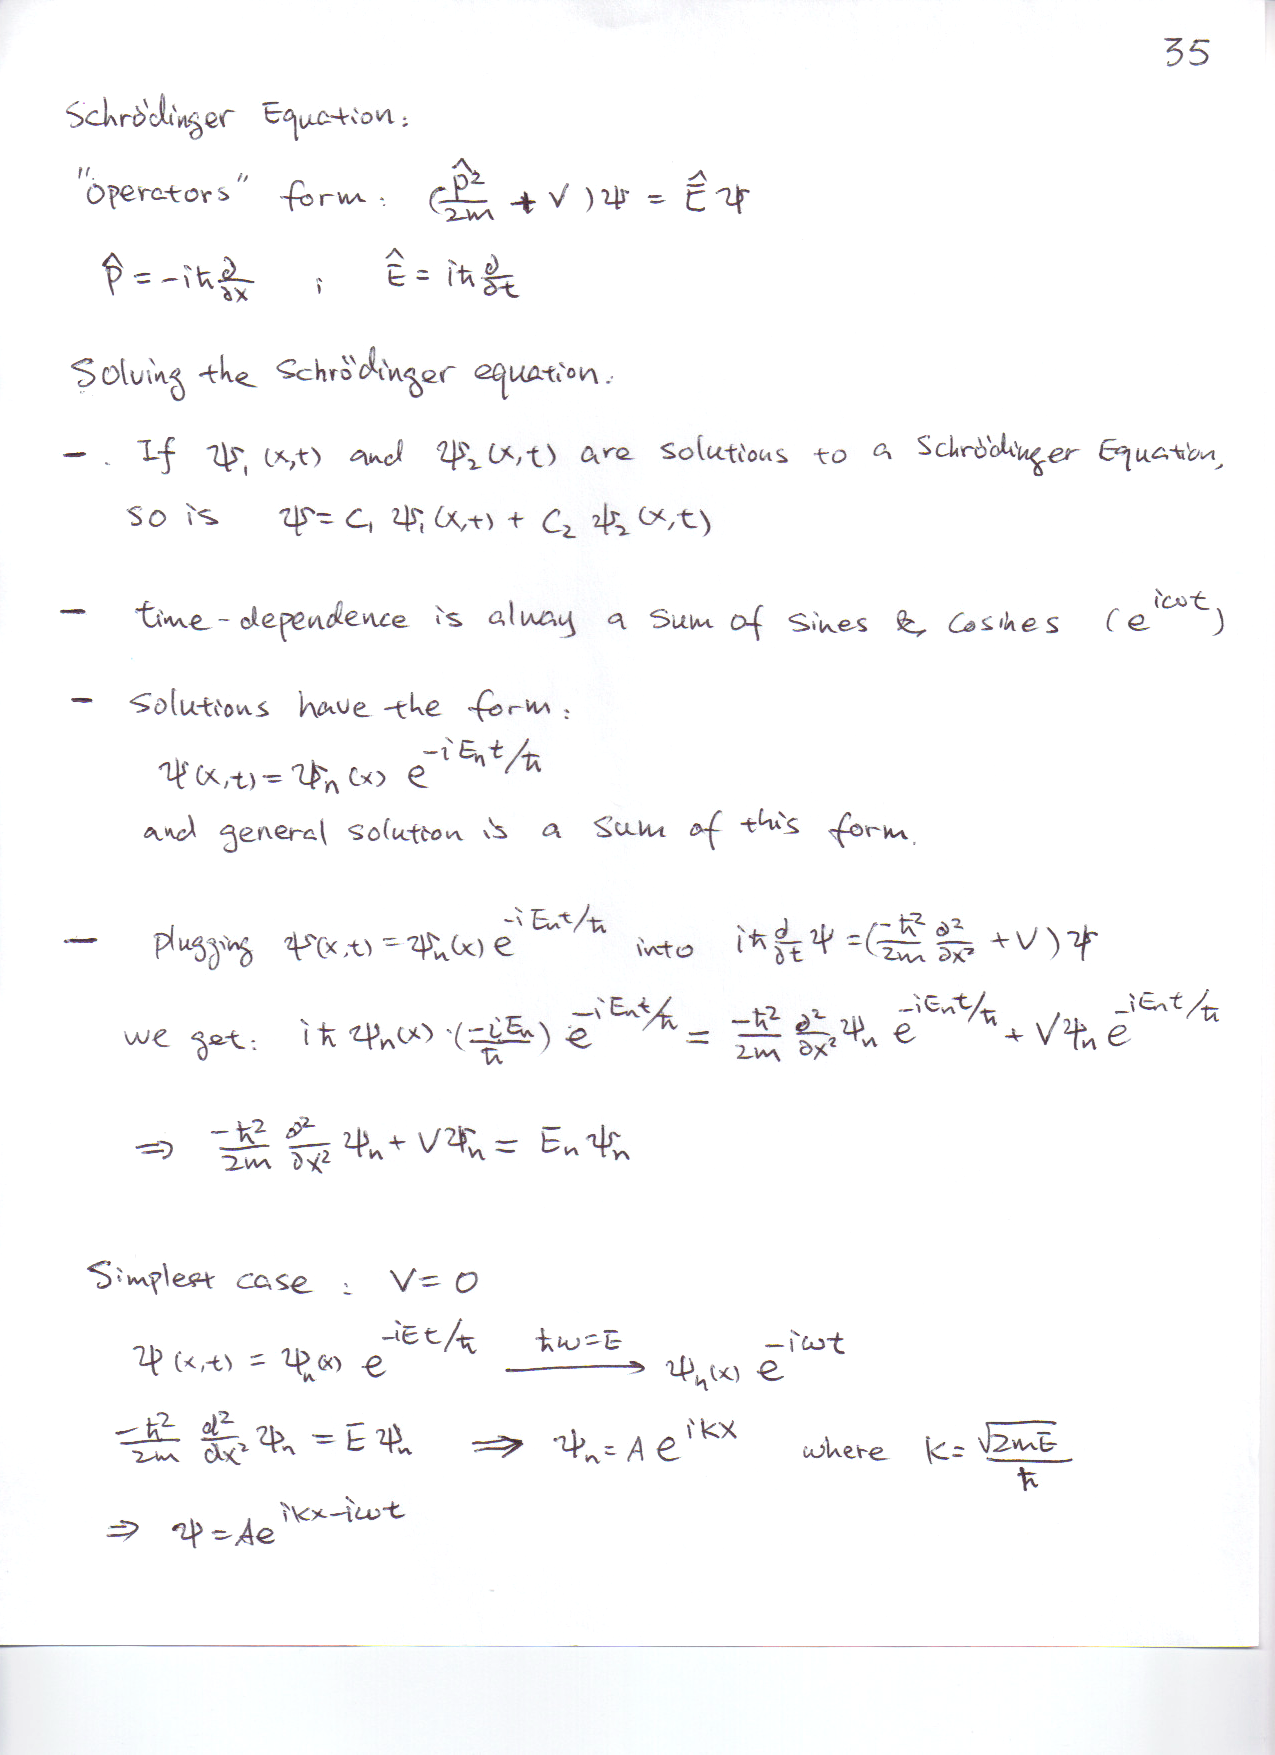 35
Schrödinger Equation:
"operators" form: (p̂²/2m + V)ψ = Ê ψ
p̂ = -iħ ∂/∂x ; Ê = iħ ∂/∂t
Solving the Schrödinger equation.
- . If ψ₁(x,t) and ψ₂(x,t) are solutions to a Schrödinger Equation,
so is ψ = C₁ ψ₁(x,t) + C₂ ψ₂(x,t)
- time-dependence is alway a sum of sines & cosines (e^{iωt})
- solutions have the form:
ψ(x,t) = ψₙ(x) e^{-iEₙt/ħ}
and general solution is a sum of this form.
- plugging ψ(x,t) = ψₙ(x) e^{-iEₙt/ħ} into iħ ∂/∂t ψ = (-ħ²/2m ∂²/∂x² + V)ψ
we get: iħ ψₙ(x) · (-iEₙ/ħ) e^{-iEₙt/ħ} = -ħ²/2m ∂²/∂x² ψₙ e^{-iEₙt/ħ} + Vψₙ e^{-iEₙt/ħ}
⇒ -ħ²/2m ∂²/∂x² ψₙ + Vψₙ = Eₙ ψₙ
Simplest case : V = 0
ψ(x,t) = ψₙ(x) e^{-iEt/ħ} ħω=E → ψₙ(x) e^{-iωt}
-ħ²/2m d²/dx² ψₙ = E ψₙ ⇒ ψₙ = A e^{ikx} where k = √2mE/ħ
⇒ ψ = Ae^{ikx-iωt}